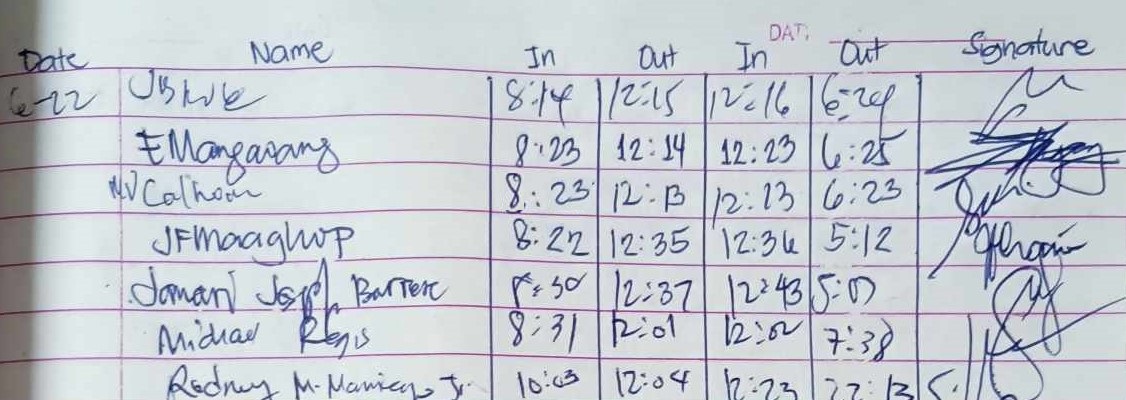 DAT.
Date Name In Out In Out Signature
6-22 8:14 12:15 12:16 6:24
EMangarang 8:23 12:14 12:23 6:25
NV Calhoun 8:23 12:13 12:13 6:23
JFMaaghop 8:22 12:35 12:36 5:12
Barrere 8:30 12:37 12:43 5:07
Michael Regis 8:31 12:01 12:02 7:38
Rodney M. Jr. 10:03 12:04 12:23